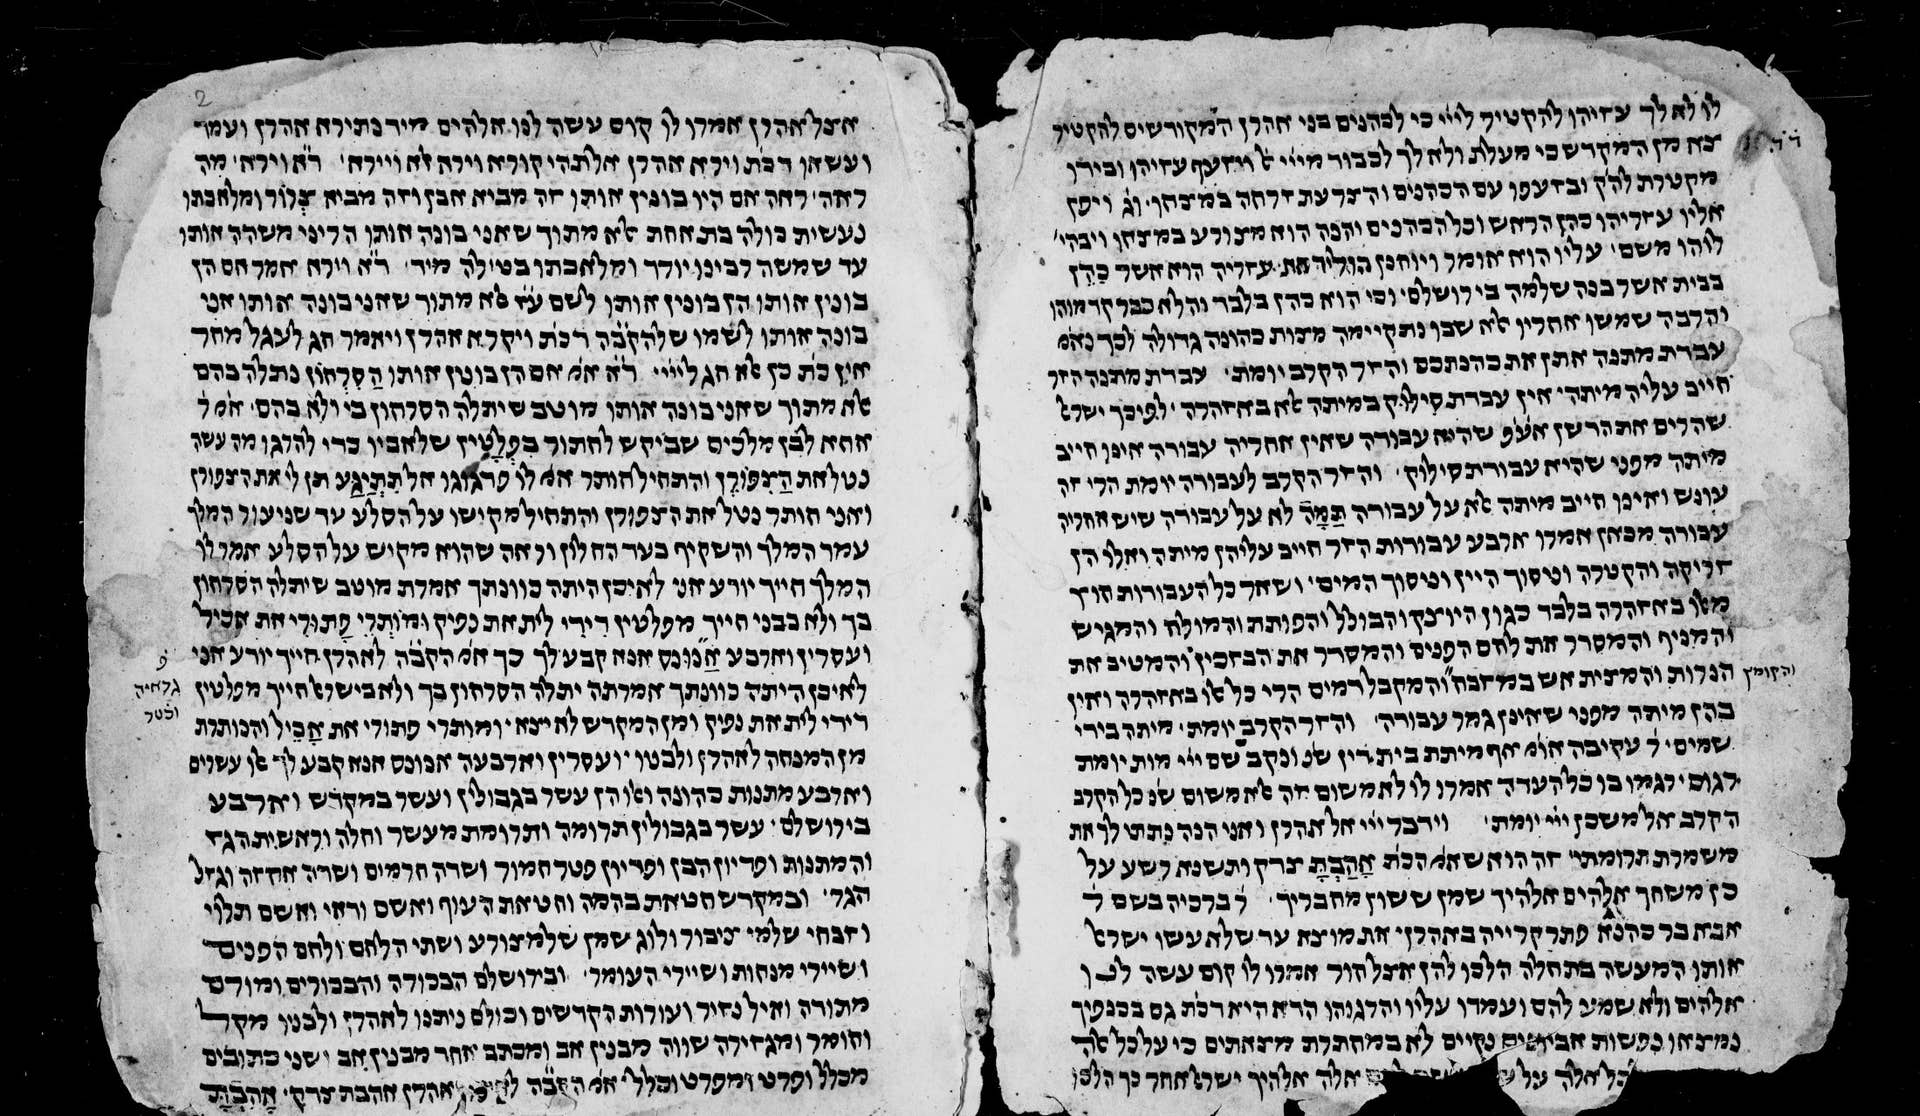 לו לא לך עזיהו להקטיר לייי כי לכהנים בני אהרן המקודשים להקטיר
צא מן המקדש כי מעלת ולא לך לכבוד מייי וֹגֹ ויזעף עזיהו ובידו
מקטרת להק ובזעפו עם הכהנים והצרעת זרחה במצחו וֹגֹ ויפן
אליו עזריהו כהן הראש וכל הכהנים והנה הוא מצורע במצחו ויבהי
לוהו משם עליו הוא אומר ויוחנן הוליד את עזריה הוא אשר כהן
בבית אשר בנה שלמה בירושלם וכי הוא כהן בלבד והלא כבר קדמוהו
והרבה שמשו אחריו אלא שבו נתקיימה מצות כהונה גדולה לכך נאמ
עבדת מתנה אתן את כהנתכם והזר הקרב יומת עבדת מתנה הזר
חייב עליה מיתה אין עבדת סילוק במיתה אלא באזהרה לפיכך ישראל
שהרים את הדשן אעפ שהיא עבודה שאין אחריה עבודה אינו חייב
מיתה מפני שהיא עבודת סילוק והזר הקרב לעבודה יומת הרי זה
עונש ואינו חייב מיתה אלא על עבודה תמה לא על עבודה שיש אחריה
עבודה מכאן אמרו ארבע עבודות הזר חייב עליהן מיתה ואלו הן
זריקה והקטרה וניסוך היין וניסוך המים ושאר כל העבודות חוץ
מאלו באזהרה בלבד כגון היוצק והבולל והפותת והמולח והמגיש
והמניף והמסדר את לחם הפנים והמסדר את הבזכין והמטיב את
הנרות והמצית אש במזבח והמקבל דמים הרי כל אלו באזהרה ואין
והקומץ
בהן מיתה מפני שאינן גמר עבודה והזר הקרב יומת מיתה בידי
שמים ר עקיבה אומ אף מיתת בית דין שנ ונקב שם ייי מות יומת
רגום ירגמו בו כל העדה אמרו לו לא משום זה אלא משום שנ כל הקרב
הקרב אל משכן ייי יומת וידבר ייי אל אהרן ואני הנה נתתי לך את
משמרת תרומתי זה הוא שאמ הכת אהבת צדק ותשנא רשע על
כן משחך אלהים אלהיך שמן ששון מחבריך ר ברכיה בשם ר
אבא בר כהנא פתר קרייה באהרן את מוצא עד שלא עשו ישראל
אותו המעשה בתחלה הלכו להן אצל חור אמרו לו קום עשה לנו
אלהים ולא שמע להם ועמדו עליו והרגוהו הדא היא דכת גם בכנפיך
נמצאו נפשות אביונים נקיים לא במחתרת מצאתים כי על כל אלה
כל אלה על אלה אלהיך ישראל אחר כך הלכו
אצל אהרן אמרו לו קום עשה לנו אלהים מיד נתירא אהרן ועמד
ועשאו דכת וירא אהרן אל תהי קורא וירא אלא ויירא דא וירא מה
ראה ראה אם היו בונין אותו זה מביא אבן וזה מביא צרור ומלאכתו
נעשית כולה בת אחת אלא מתוך שאני בונה אותו הריני משהה אותו
עד שמשה רבינו יורד ומלאכתו בטילה מיד דא וירא אמר אם הן
בונין אותו הן בונין אותו לשם עז אלא מתוך שאני בונה אותו אני
בונה אותו לשמו שלהקבה דכת ויקרא אהרן ויאמר חג לעגל מחר
אין כת כן אלא חג לייי דא אמ אם הן בונין אותו הסרחון נתלה בהם
אלא מתוך שאני בונה אותו מוטב שיתלה הסרחון בי ולא בהם אמ ר
אחא לבן מלכים שביקש לחתור בפלטין שלאביו כדי להרגו מה עשה
נטל את הציפורן והתחיל חותר אמ לו פדגוגו אל תתיגע תן לי את הצפורן
ואני חותר נטל את הצפורן והתחיל מקישו על הסלע עד שניעור המלך
עמד המלך והשקיף בעד החלון וראה שהוא מקיש על הסלע אמר לו
המלך חייך יודע אני לאיכן היתה כוונתך אמרת מוטב שיתלה הסרחון
בך ולא בבני חייך מפלטין דידי לית את נפיק ומותרי פתורי את אכיל
ועסרין וארבע אנונס אנא קבע לך כך אמ הקבה לאהרן חייך יודע אני
לאיכן היתה כוונתך אמרתה יתלה הסרחון בך ולא בישראל חייך מפלטין
דידי לית את נפיק ומן המקדש לא יצא ומותרי פתורי את אכיל והנותרת
מן המנחה לאהרן ולבניו ועסרין וארבעה אנונס אנא קבע לך אלו עשרים
וארבע מתנות כהונה ואלו הן עשר בגבולין ועשר במקדש וארבע
בירושלם עשר בגבולין תרומה ותרומת מעשר וחלה וראשית הגז
והמתנות ופדיון הבן ופדיון פטר חמור ושדה חרמים ושדה אחזה וגזל
הגר ובמקדש חטאת בהמה וחטאת העוף ואשם ודאי ואשם תלוי
וזבחי שלמי ציבור ולוג שמן שלמצורע ושתי הלחם ולחם הפנים
ושיירי מנחות ושיירי העומר ובירושלם הבכורה והבכורים ומורם
מתודה ואיל נזיר ועורות הקדשים וכולם ניתנו לאהרן ולבניו מקל
וחומר ומגזירה שווה מבנין אב ומכתב אחד מבנין אב ושני כתובים
מכלל ופרט ומפרט וכלל אמ הקבה אהרן אהבת צדק אהבת